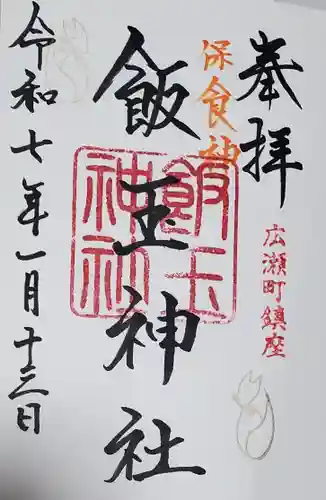 奉拝
保食神
広瀬町鎮座
飯玉神社
飯玉神社
令和七年一月十三日